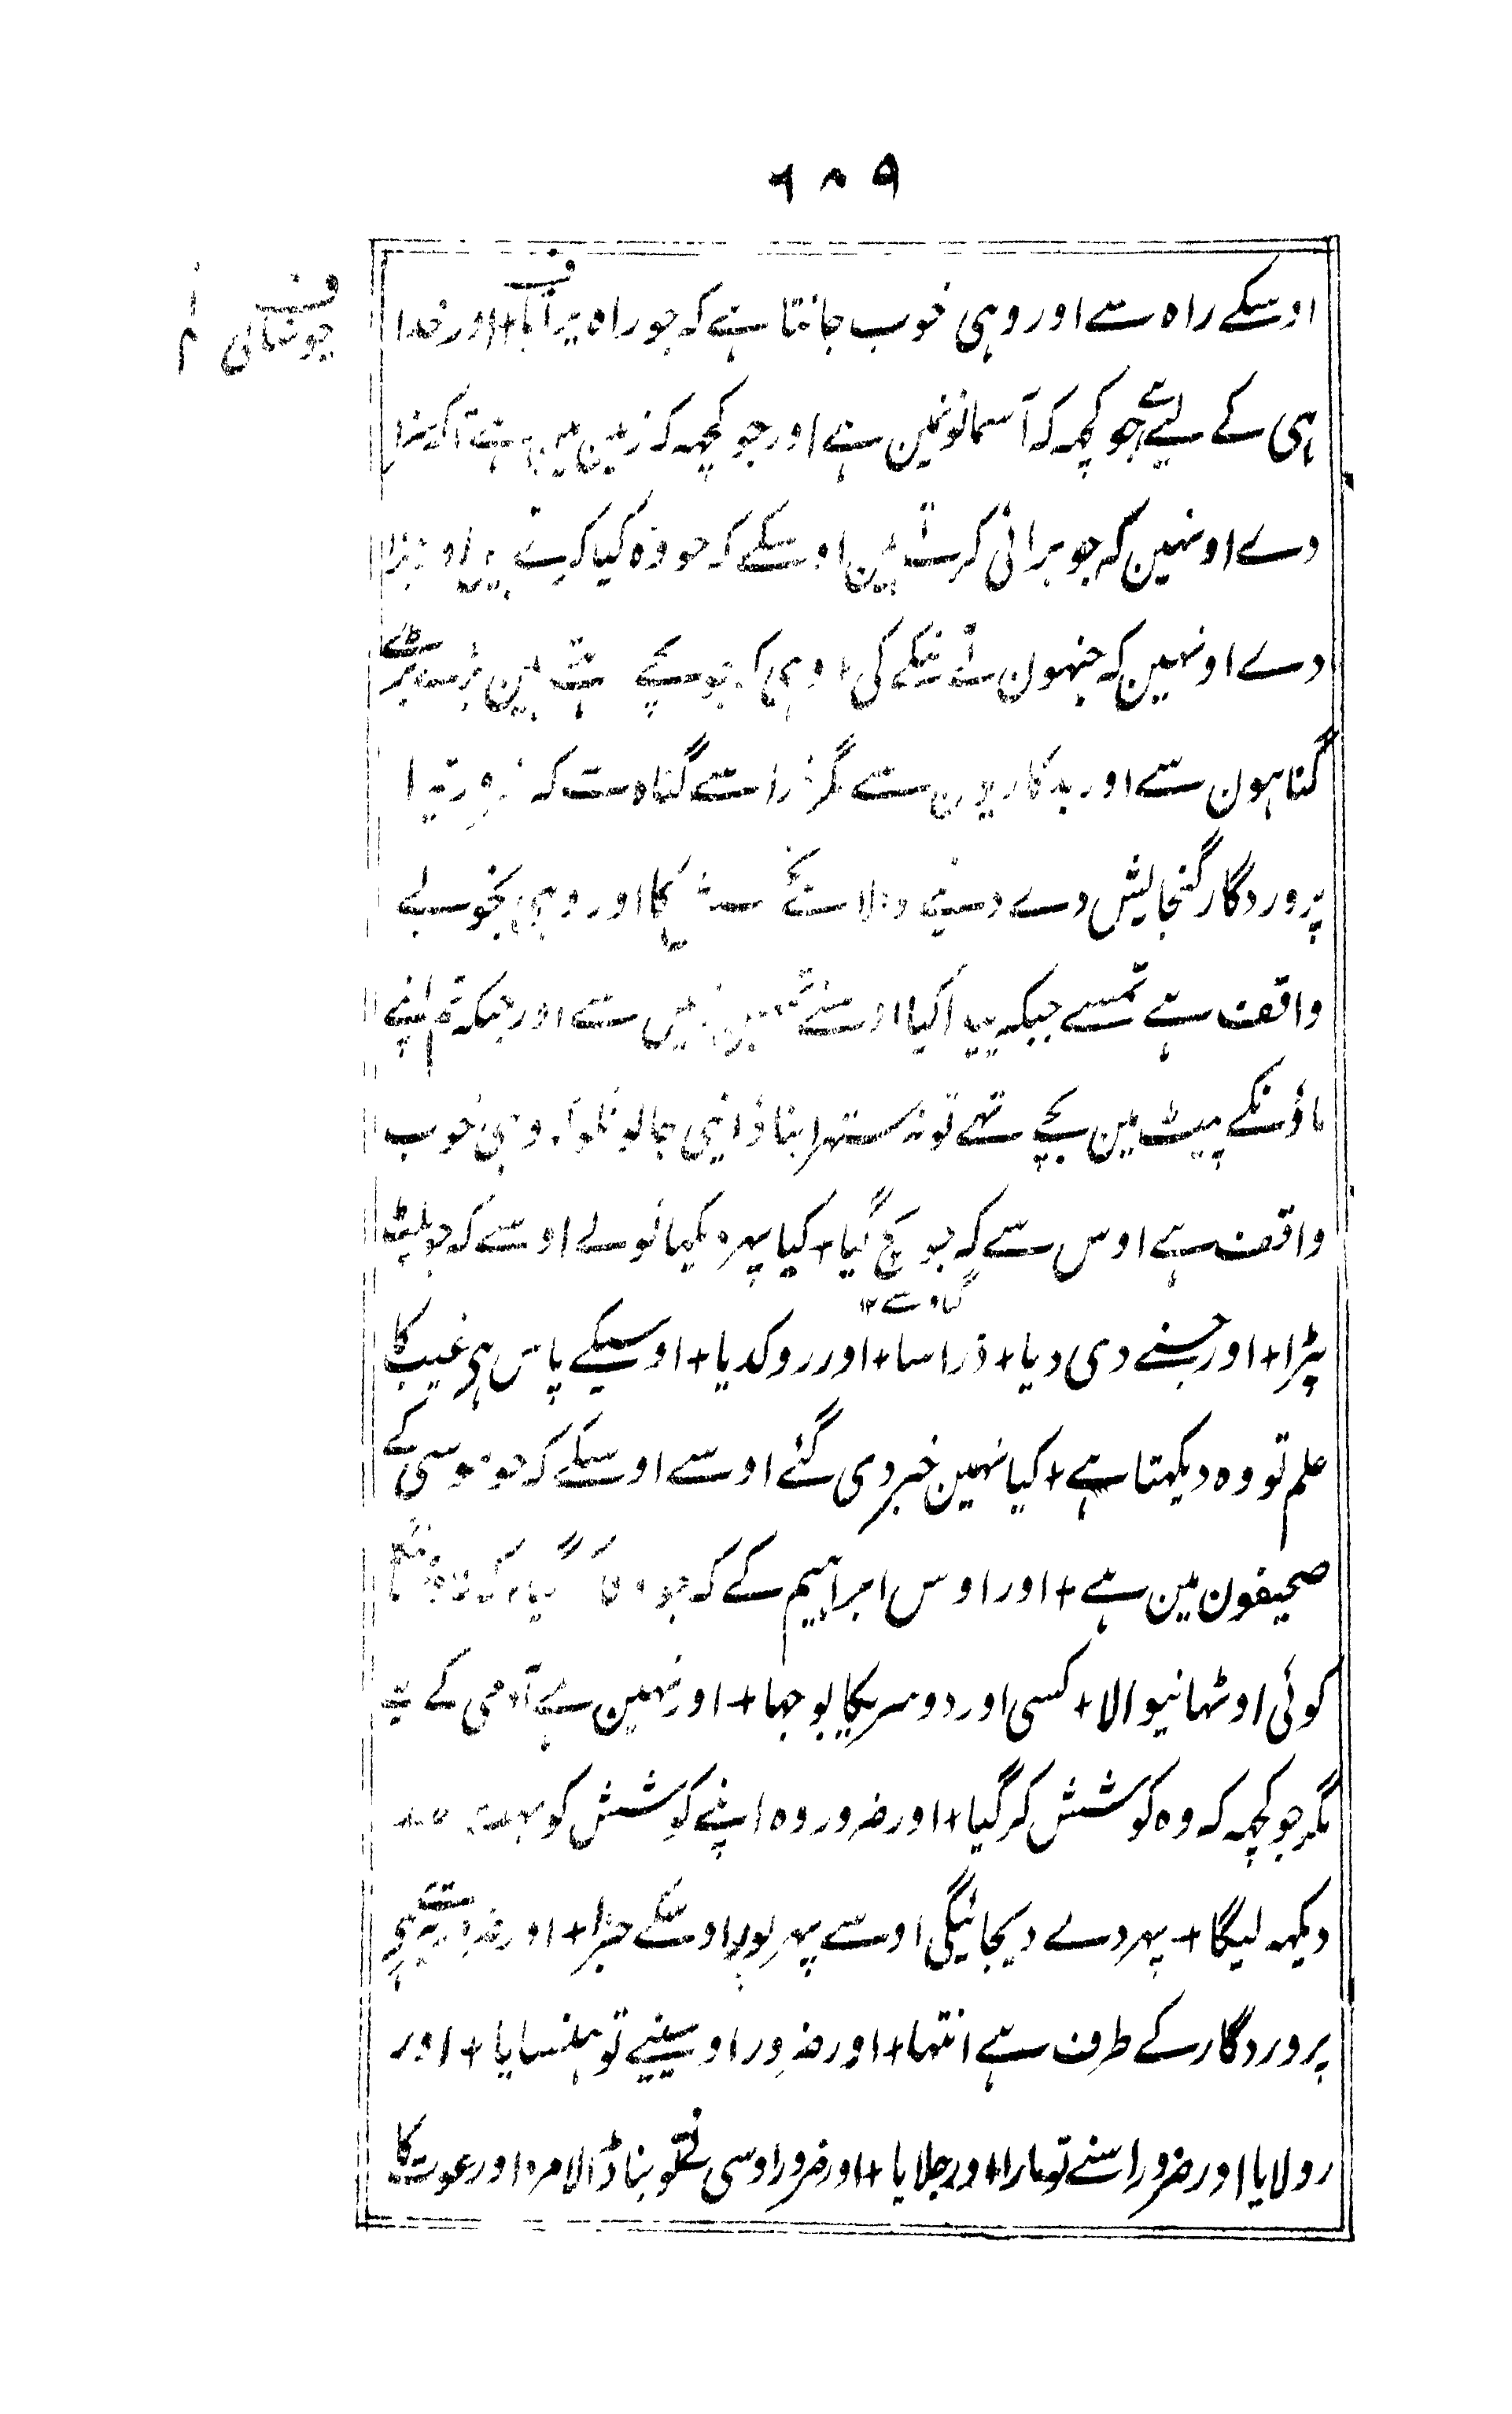 ۹۸۹
اوسکے راہ سے اور وہی خوب جانتا ہے کہ جو راہ پر آیا + اور خدا
ف
چوتھائی
ہی کے لیے ہے جو کچہ کہ آسمانونمین ہے اور جو کچہہ کہ زمین مین ہے تاکہ سزا
دے اونہین کہ جو برائی کرتے ہین اوسکے کہ جو وہ کیا کرتے ہین اور جزا
دے اونہین کہ جنہون نے نیکے کی + وہی کہ جو بچے رہتے ہین بڑے بڑے
گناہون سے اور بدکاریون سے مگر ذرا سے گناہ سے کہ ضرور تیرا
پروردگار گنجایش دے دینے والا ہے کا اور وہی بخوبے
واقف ہے تمسے جبکہ پیدا کیا اوسنے تمہین زمین سے اور جبکہ تم اپنے
ماؤنکے پیٹ مین بچے تہے تو نہ ستہرا بناؤ اپنی جانونکو + وہی خوب
واقف ہے اوس سے کہ جو بچ گیا + کیا پہر دیکہا تونے اوسے کہ جو پلٹ
گناہ سے ۱۲
پڑا + اور جسنے دی دیا + ذرا سا + اور روکدیا + اوسیکے پاس ہی غیب کا
علم تو وہ دیکہتا ہے + کیا نہین خبر دی گئے اوسے اوسکے کہ جو موسی کے
صحیفون مین ہے + اور اوس ابراہیم کے کہ جو
کوئی اوٹہانیوالا + کسی اور دوسریکا بوجہا + اور نہین ہے آدمی کے لیے
مگر جو کچہہ کہ وہ کوشش کر گیا + اور ضرور وہ اپنے کوشش کو بہت جلد
دیکہہ لیگا + پہر دے دیجائیگی اوسے پہر پور اوسکے جزا + اور ضرور تیرے ہی
پروردگار کے طرف ہے انتہا + اور ضرور اوسینے تو ہنسایا + اور
رولایا اور ضرور اسنے تو مارا + اور جلایا + اور ضرور اوسی نے تمکو بنا ڈالا مرد اور عورت کا